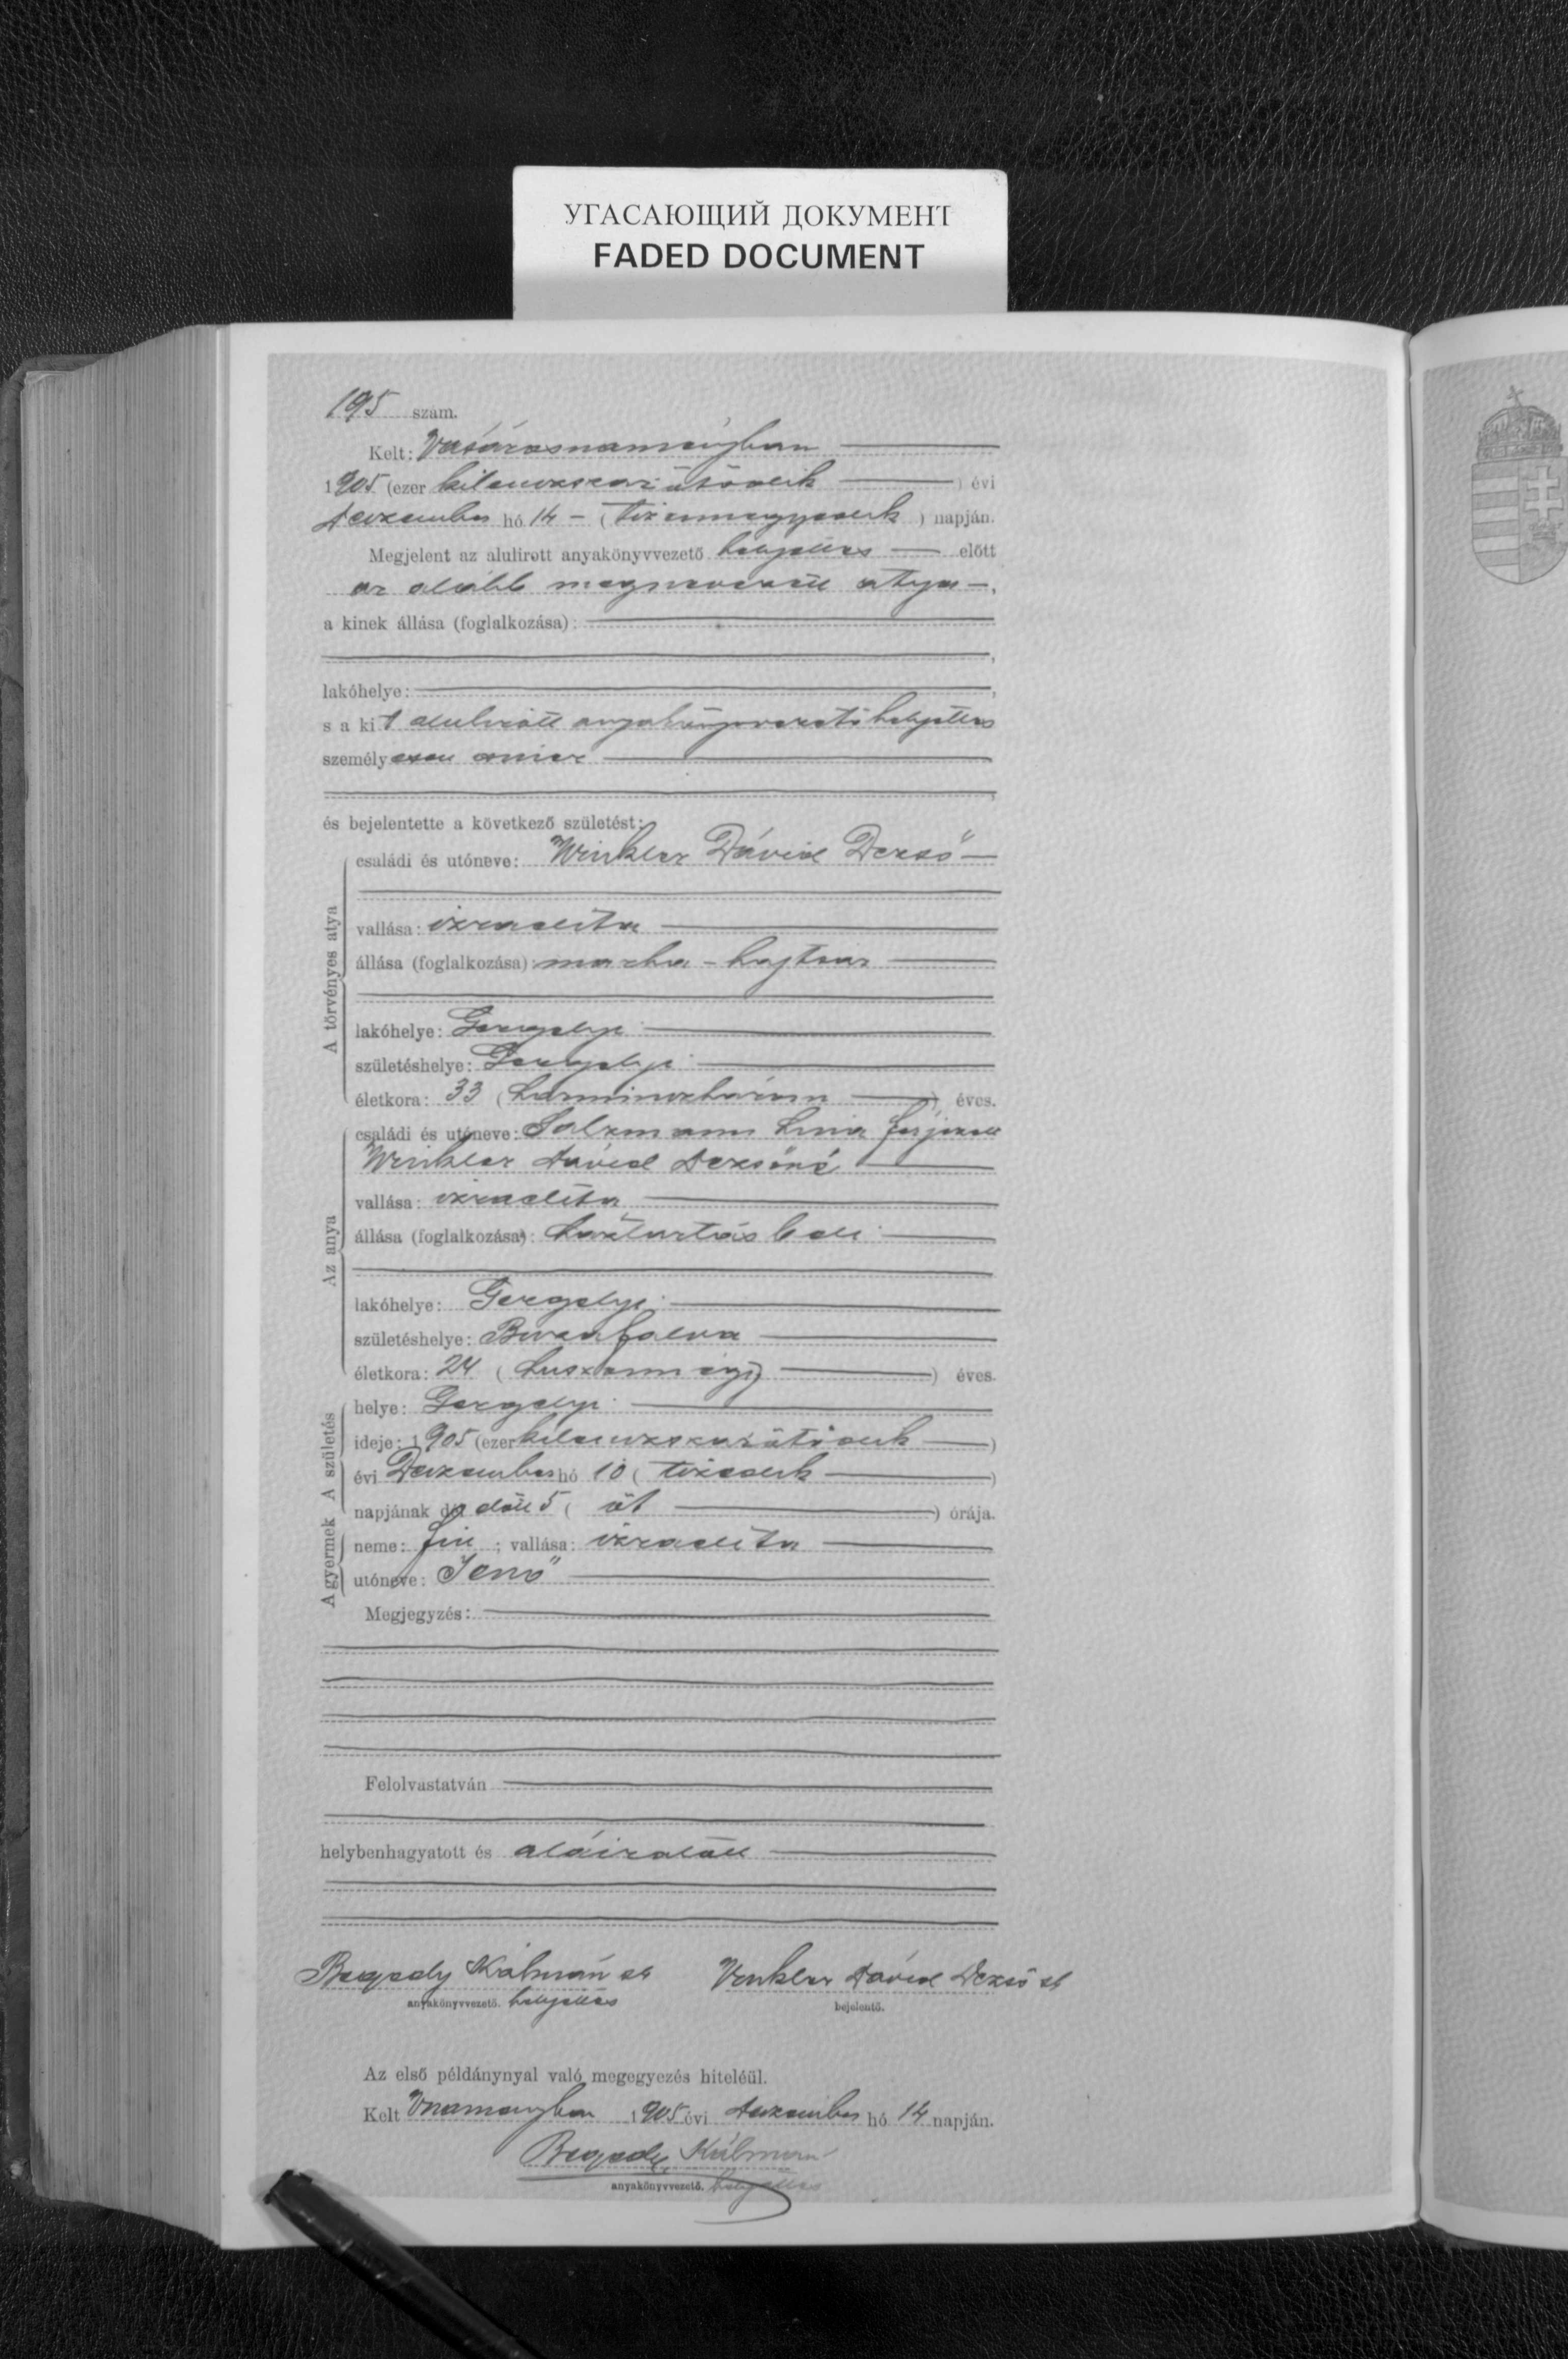 УГАСАЮЩИЙ ДОКУМЕНТ
FADED DOCUMENT
195 szám.
Kelt: Vásárosnaményban
1905 (ezer kilenczszázötödik) évi
deczember hó 14 - (tizennegyedik) napján.
Megjelent az alulirott anyakönyvvezető helyettes előtt
az alább megnevezett atya -,
a kinek állása (foglalkozása):
,
lakóhelye: ,
s a kit alulirott anyakönyvvezető helyettes
személyesen ismer
,
és bejelentette a következő születést:
A törvényes atya
családi és utóneve: Winkler Dávid Dezső
vallása: izraelita
állása (foglalkozása): marha-hajtsár
lakóhelye: Gergelyi
születéshelye: Gergelyi
életkora: 33 (harminczhárom) éves.
Az anya
családi és utóneve: Salzmann Lina férjezett
Winkler Dávid Dezsőné
vallása: izraelita
állása (foglalkozása): háztartásbeli
lakóhelye: Gergelyi
születéshelye:
életkora: 24 (huszonnégy) éves.
A születés
helye: Gergelyi
ideje: 1905 (ezer kilenczszázötödik)
évi Deczember hó 10 (tizedik)
napjának d előtt 5 (öt) órája.
A gyermek
neme: fiú; vallása: izraelita
utóneve: Jenő
Megjegyzés:
Felolvastatván
helybenhagyatott és aláiratott
Kálmán sk Vinkler Dávid Dezső sk
anyakönyvvezető. helyettes bejelentő.
Az első példánynyal való megegyezés hiteléül.
Kelt Vnaményban 1905 évi deczember hó 14 napján.
Kálmán
anyakönyvvezető. helyettes